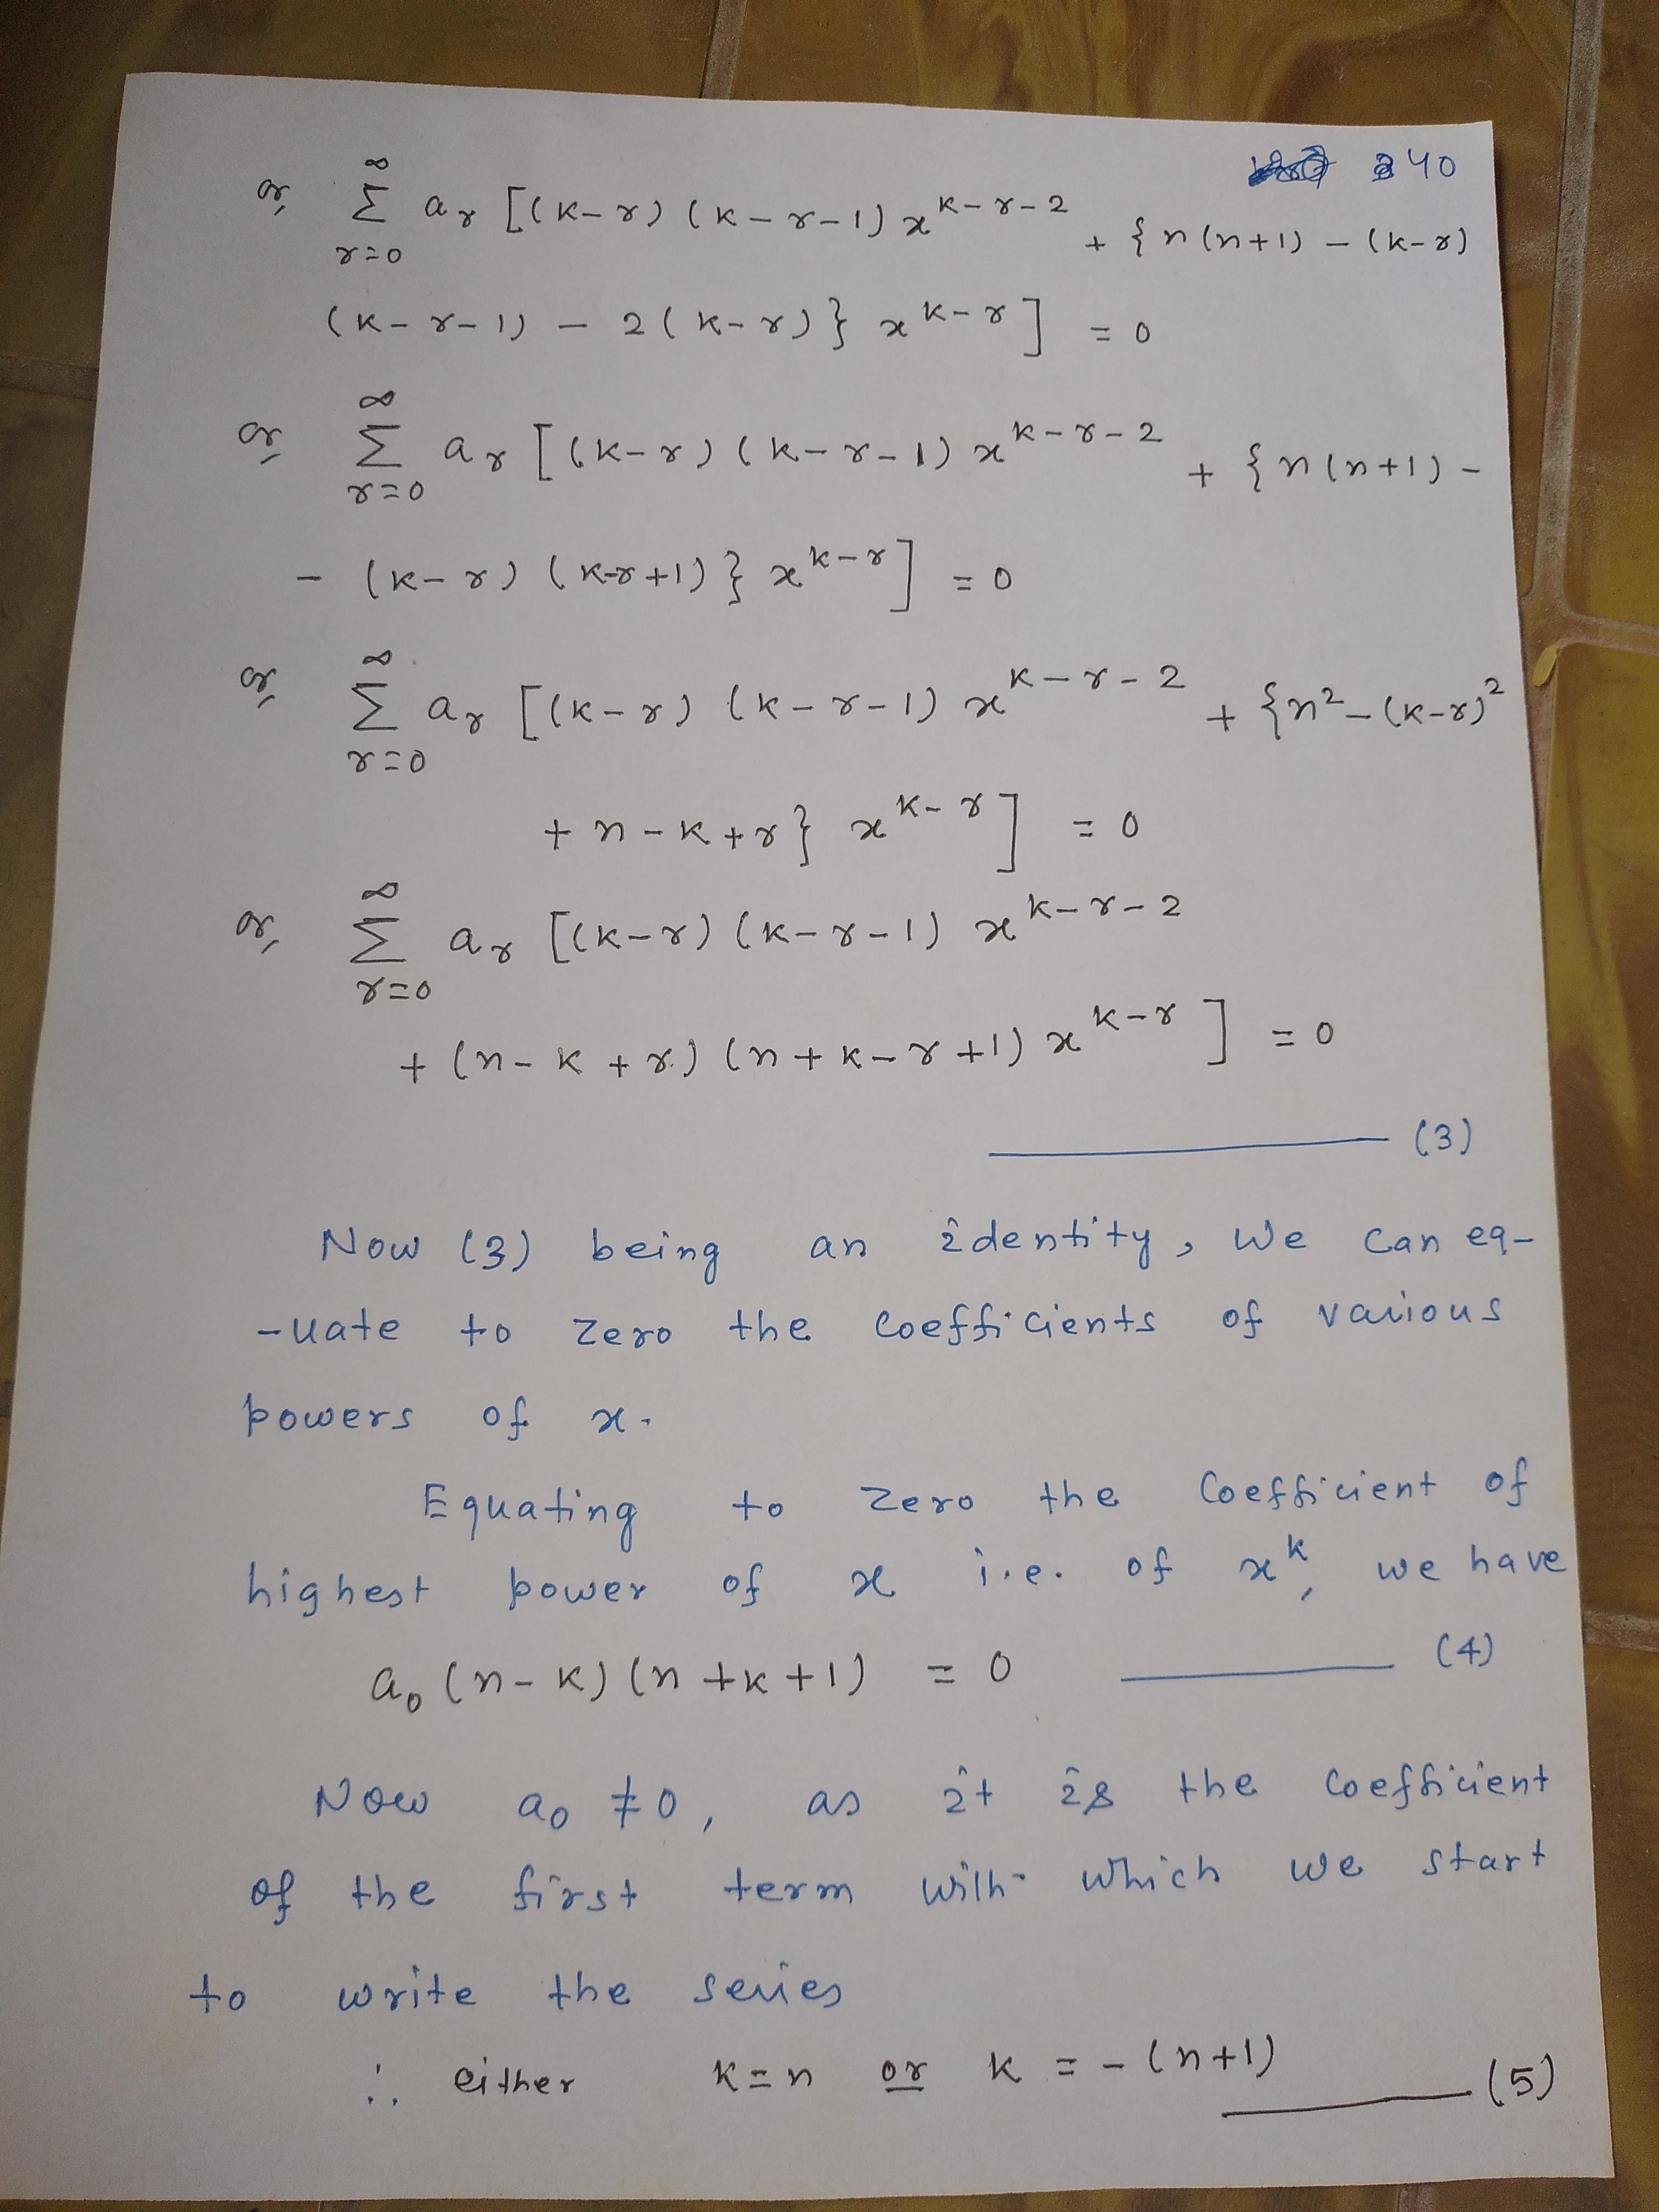 240
or, ∞ Σ r=0 a_r [(k-r) (k-r-1) x^{k-r-2} + {n(n+1) - (k-r)
(k-r-1) - 2(k-r)} x^{k-r}] = 0
or, ∞ Σ r=0 a_r [(k-r) (k-r-1) x^{k-r-2} + {n(n+1) -
- (k-r) (k-r+1)} x^{k-r}] = 0
or, ∞ Σ r=0 a_r [(k-r) (k-r-1) x^{k-r-2} + {n² - (k-r)²
+ n-k+r} x^{k-r}] = 0
or, ∞ Σ r=0 a_r [(k-r) (k-r-1) x^{k-r-2}
+ (n-k+r) (n+k-r+1) x^{k-r}] = 0
(3)
Now (3) being an identity, we can eq-
-uate to zero the coefficients of various
powers of x.
Equating to zero the coefficient of
highest power of x i.e. of x^k, we have
a₀ (n-k) (n+k+1) = 0 (4)
Now a₀ ≠ 0, as it is the coefficient
of the first term with which we start
to write the series
∴ either k=n or k = -(n+1) (5)